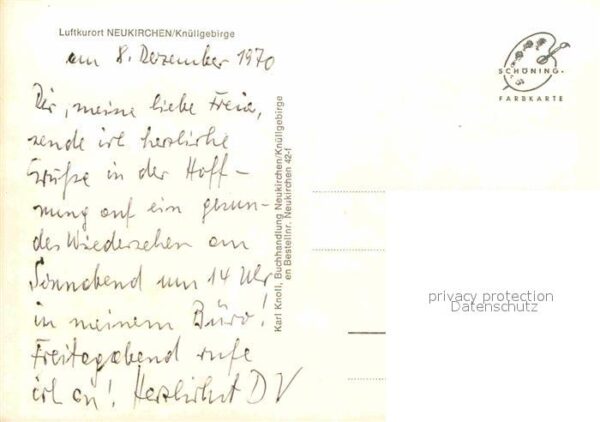 Luftkurort NEUKIRCHEN/Knüllgebirge
am 8. Dezember 1970
Dir, meine liebe Freia,
sende ich herzliche
Grüße in der Hoff-
nung auf ein gesun-
des Wiedersehen am
Sonnabend um 14 Uhr
in meinem Büro!
Freitagabend rufe
ich an! Herzlichst DV
Karl Knoll, Buchhandlung Neukirchen/Knüllgebirge
en Bestellnr. Neukirchen 42-1
SCHÖNING-
FARBKARTE
privacy protection
Datenschutz